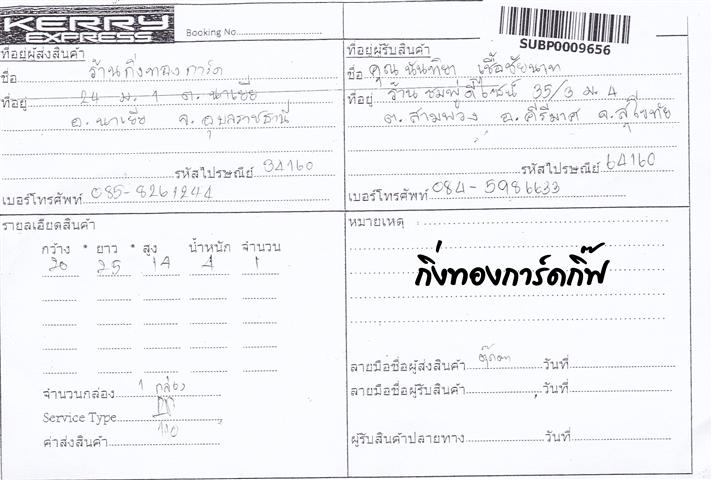 KERRY
EXPRESS
Booking No.
SUBP0009656
ที่อยู่ผู้ส่งสินค้า
ชื่อ ร้านกิ่งทองการ์ด
ที่อยู่ 24 ม. 1 ต. นาเยีย
อ. นาเยีย จ. อุบลราชธานี
รหัสไปรษณีย์ 34160
เบอร์โทรศัพท์ 085-8261244
ที่อยู่ผู้รับสินค้า
ชื่อ คุณ นันทิยา เชื้อชัยนาท
ที่อยู่ ร้าน ชมพู่ดีไซน์ 35/3 ม. 4
ต. สามพวง อ. คีรีมาศ จ. สุโขทัย
รหัสไปรษณีย์ 64160
เบอร์โทรศัพท์ 084-5986633
รายละเอียดสินค้า
กว้าง * ยาว * สูง น้ำหนัก จำนวน
20 25 14 4 1
จำนวนกล่อง 1 กล่อง
Service Type
ค่าส่งสินค้า 110
หมายเหตุ
กิ่งทองการ์ดกิ๊ฟ
ลายมือชื่อผู้ส่งสินค้า วันที่
ลายมือชื่อผู้รับสินค้า วันที่
ผู้รับสินค้าปลายทาง วันที่